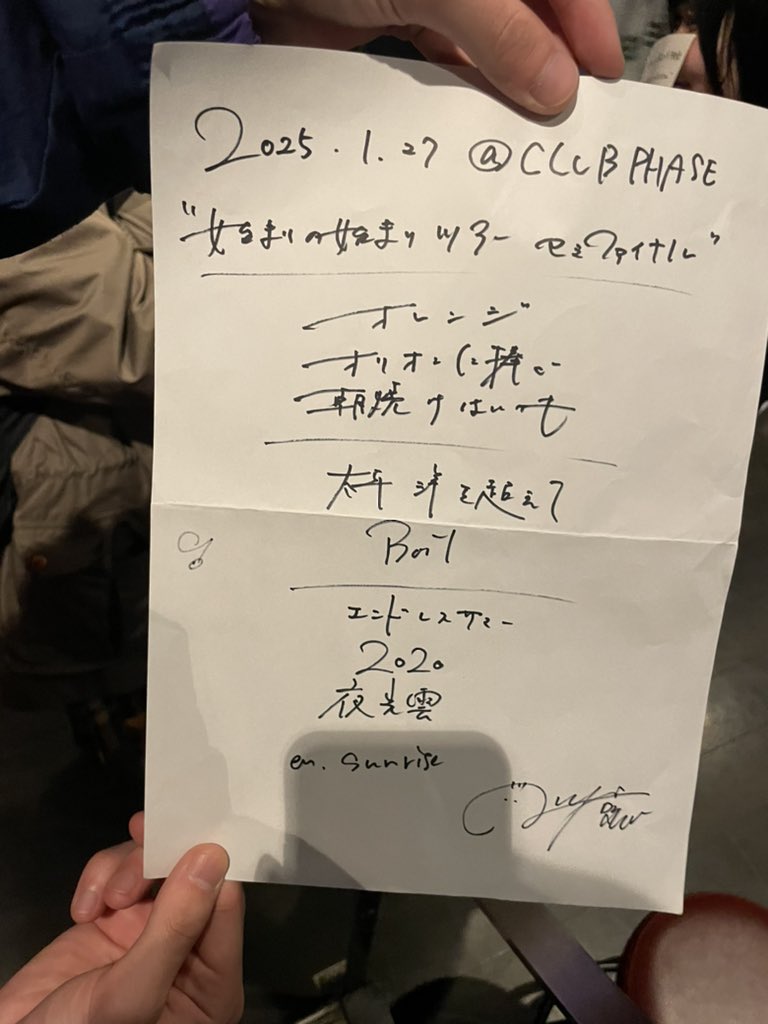 2025.1.27 @CLUB PHASE
"始まりの始まりツアー セミファイナル"
オレンジ
オリオンに捧ぐ
朝焼けはいつも
太平洋を超えて
Boy
エンドレスサマー
2020
夜光雲
en. sunrise